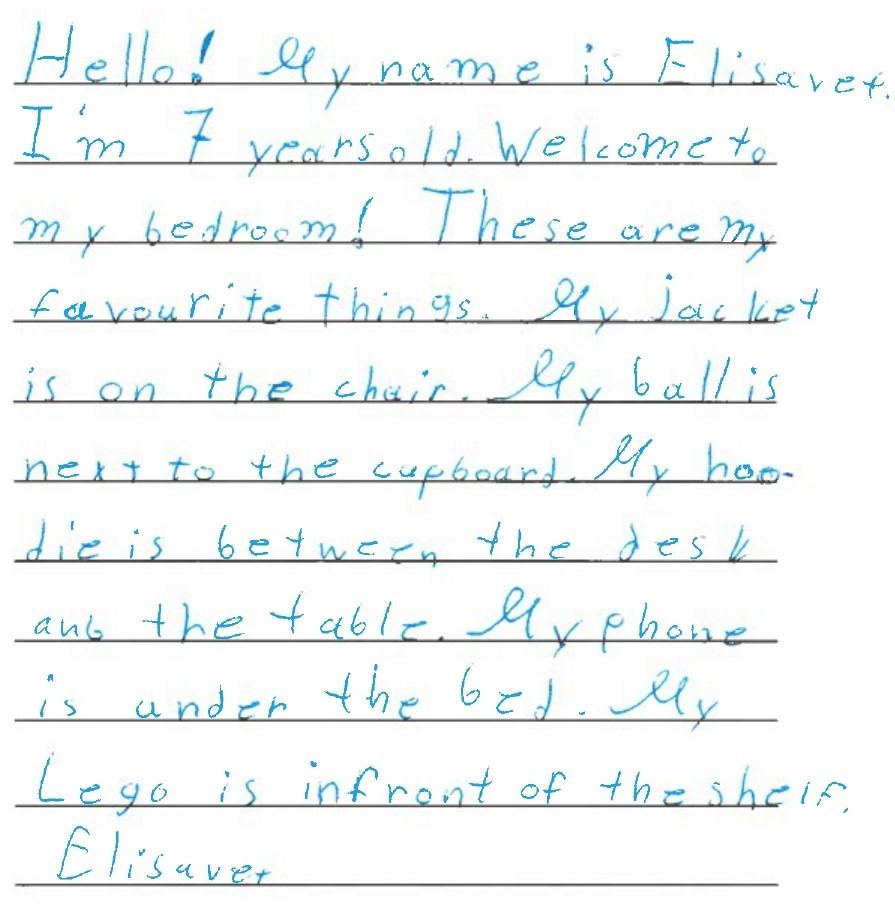 Hello! My name is Elisavet.
I'm 7 years old. Welcome to
my bedroom! These are my
favourite things. My jacket
is on the chair. My ball is
next to the cupboard. My hoo-
die is between the desk
anb the table. My phone
is under the bed. My
Lego is infront of the shelf.
Elisavet